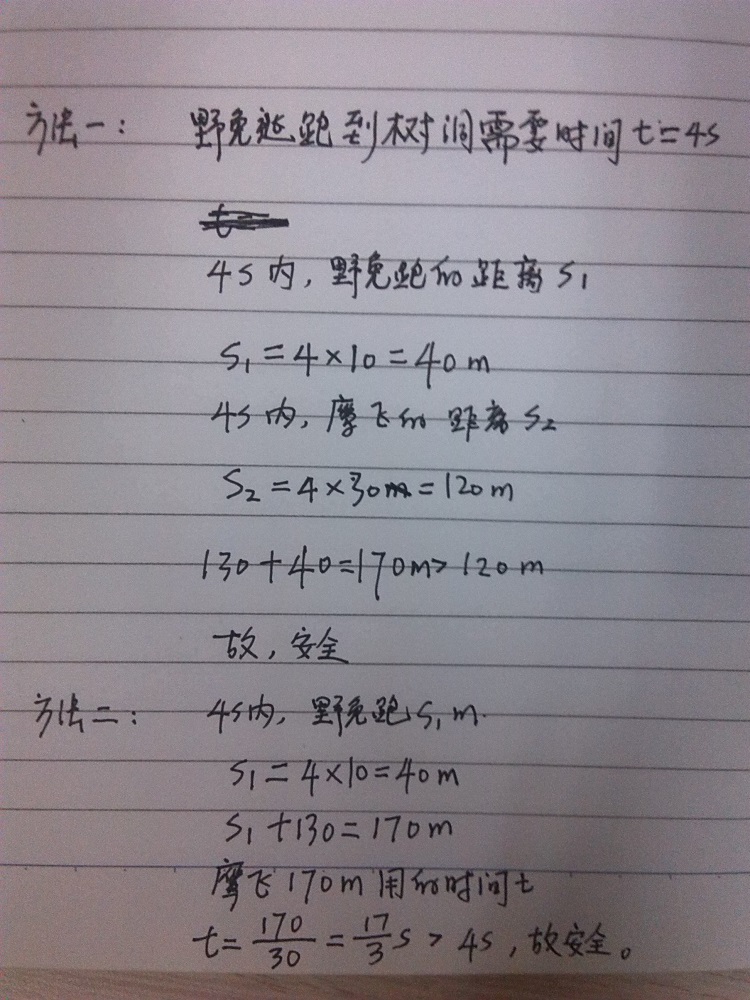 方法一： 野兔逃跑到树洞需要时间 t=4s
4s内，野兔跑的距离 S₁
S₁=4×10=40m
4s内，鹰飞的距离 S₂
S₂=4×30m=120m
130+40=170m>120m
故，安全
方法二： 4s内，野兔跑S₁m.
S₁=4×10=40m
S₁+130=170m
鹰飞170m用的时间t
t=170/30=17/3s>4s，故安全。